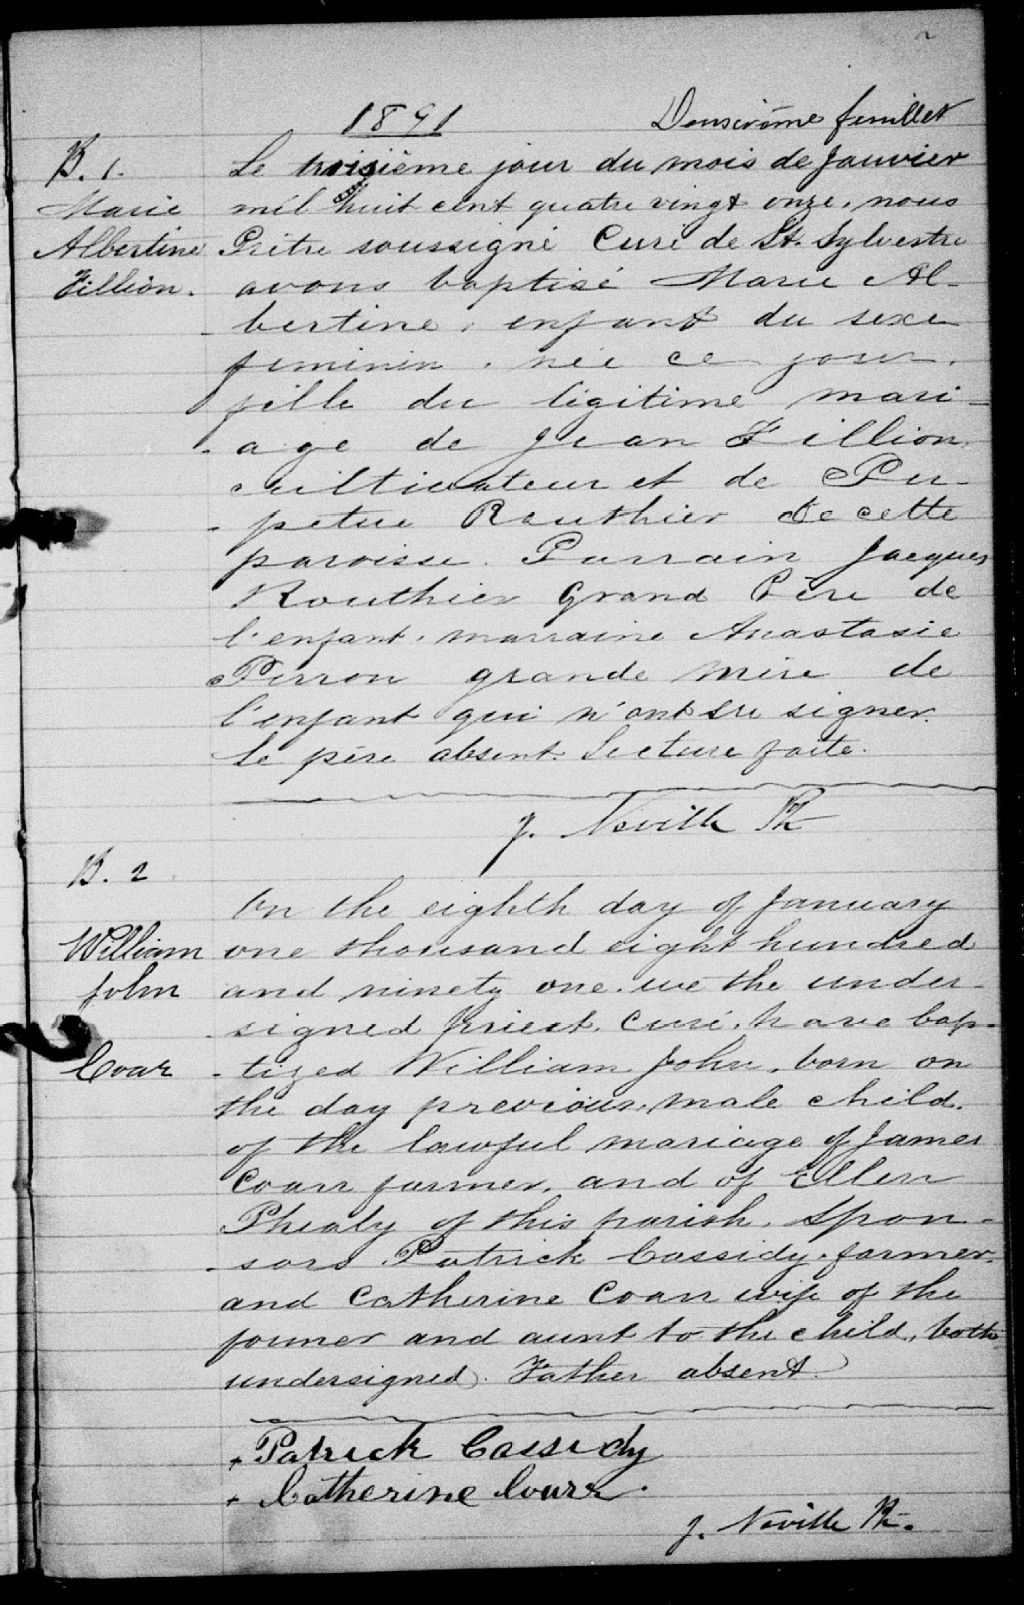 1891 Deuxième feuillet
B. 1. Le troisième jour du mois de Janvier
Marie mil huit cent quatre vingt onze, nous
Albertine Prêtre soussigné Curé de St. Sylvestre
Fillion. avons baptisé Marie Al-
- bertine, enfant du sexe
feminin, née ce jour,
fille du légitime mari-
- age de Jean Fillion
cultivateur et de Per-
- petue Routhier de cette
paroisse. Parrain Jacques
Routhier Grand Père de
l'enfant, marraine Anastasie
Perron grande mère de
l'enfant qui n'ont su signer.
Le père absent. Lecture faite.
J. Neville Ptr
B. 2
On the eighth day of January
William one thousand eight hundred
John and ninety one. we the under-
- signed priest, curé, have bap-
Coar - tized William John, born on
the day previous, male child,
of the lawful mariage of James
Coarr farmer, and of Ellen
Phealy of this parish. Spon-
- sors Patrick Cassidy, farmer
and Catherine Coarr wife of the
former and aunt to the child, both
undersigned. Father absent.
+ Patrick Cassidy
+ Catherine Courr.
J. Neville Ptr.